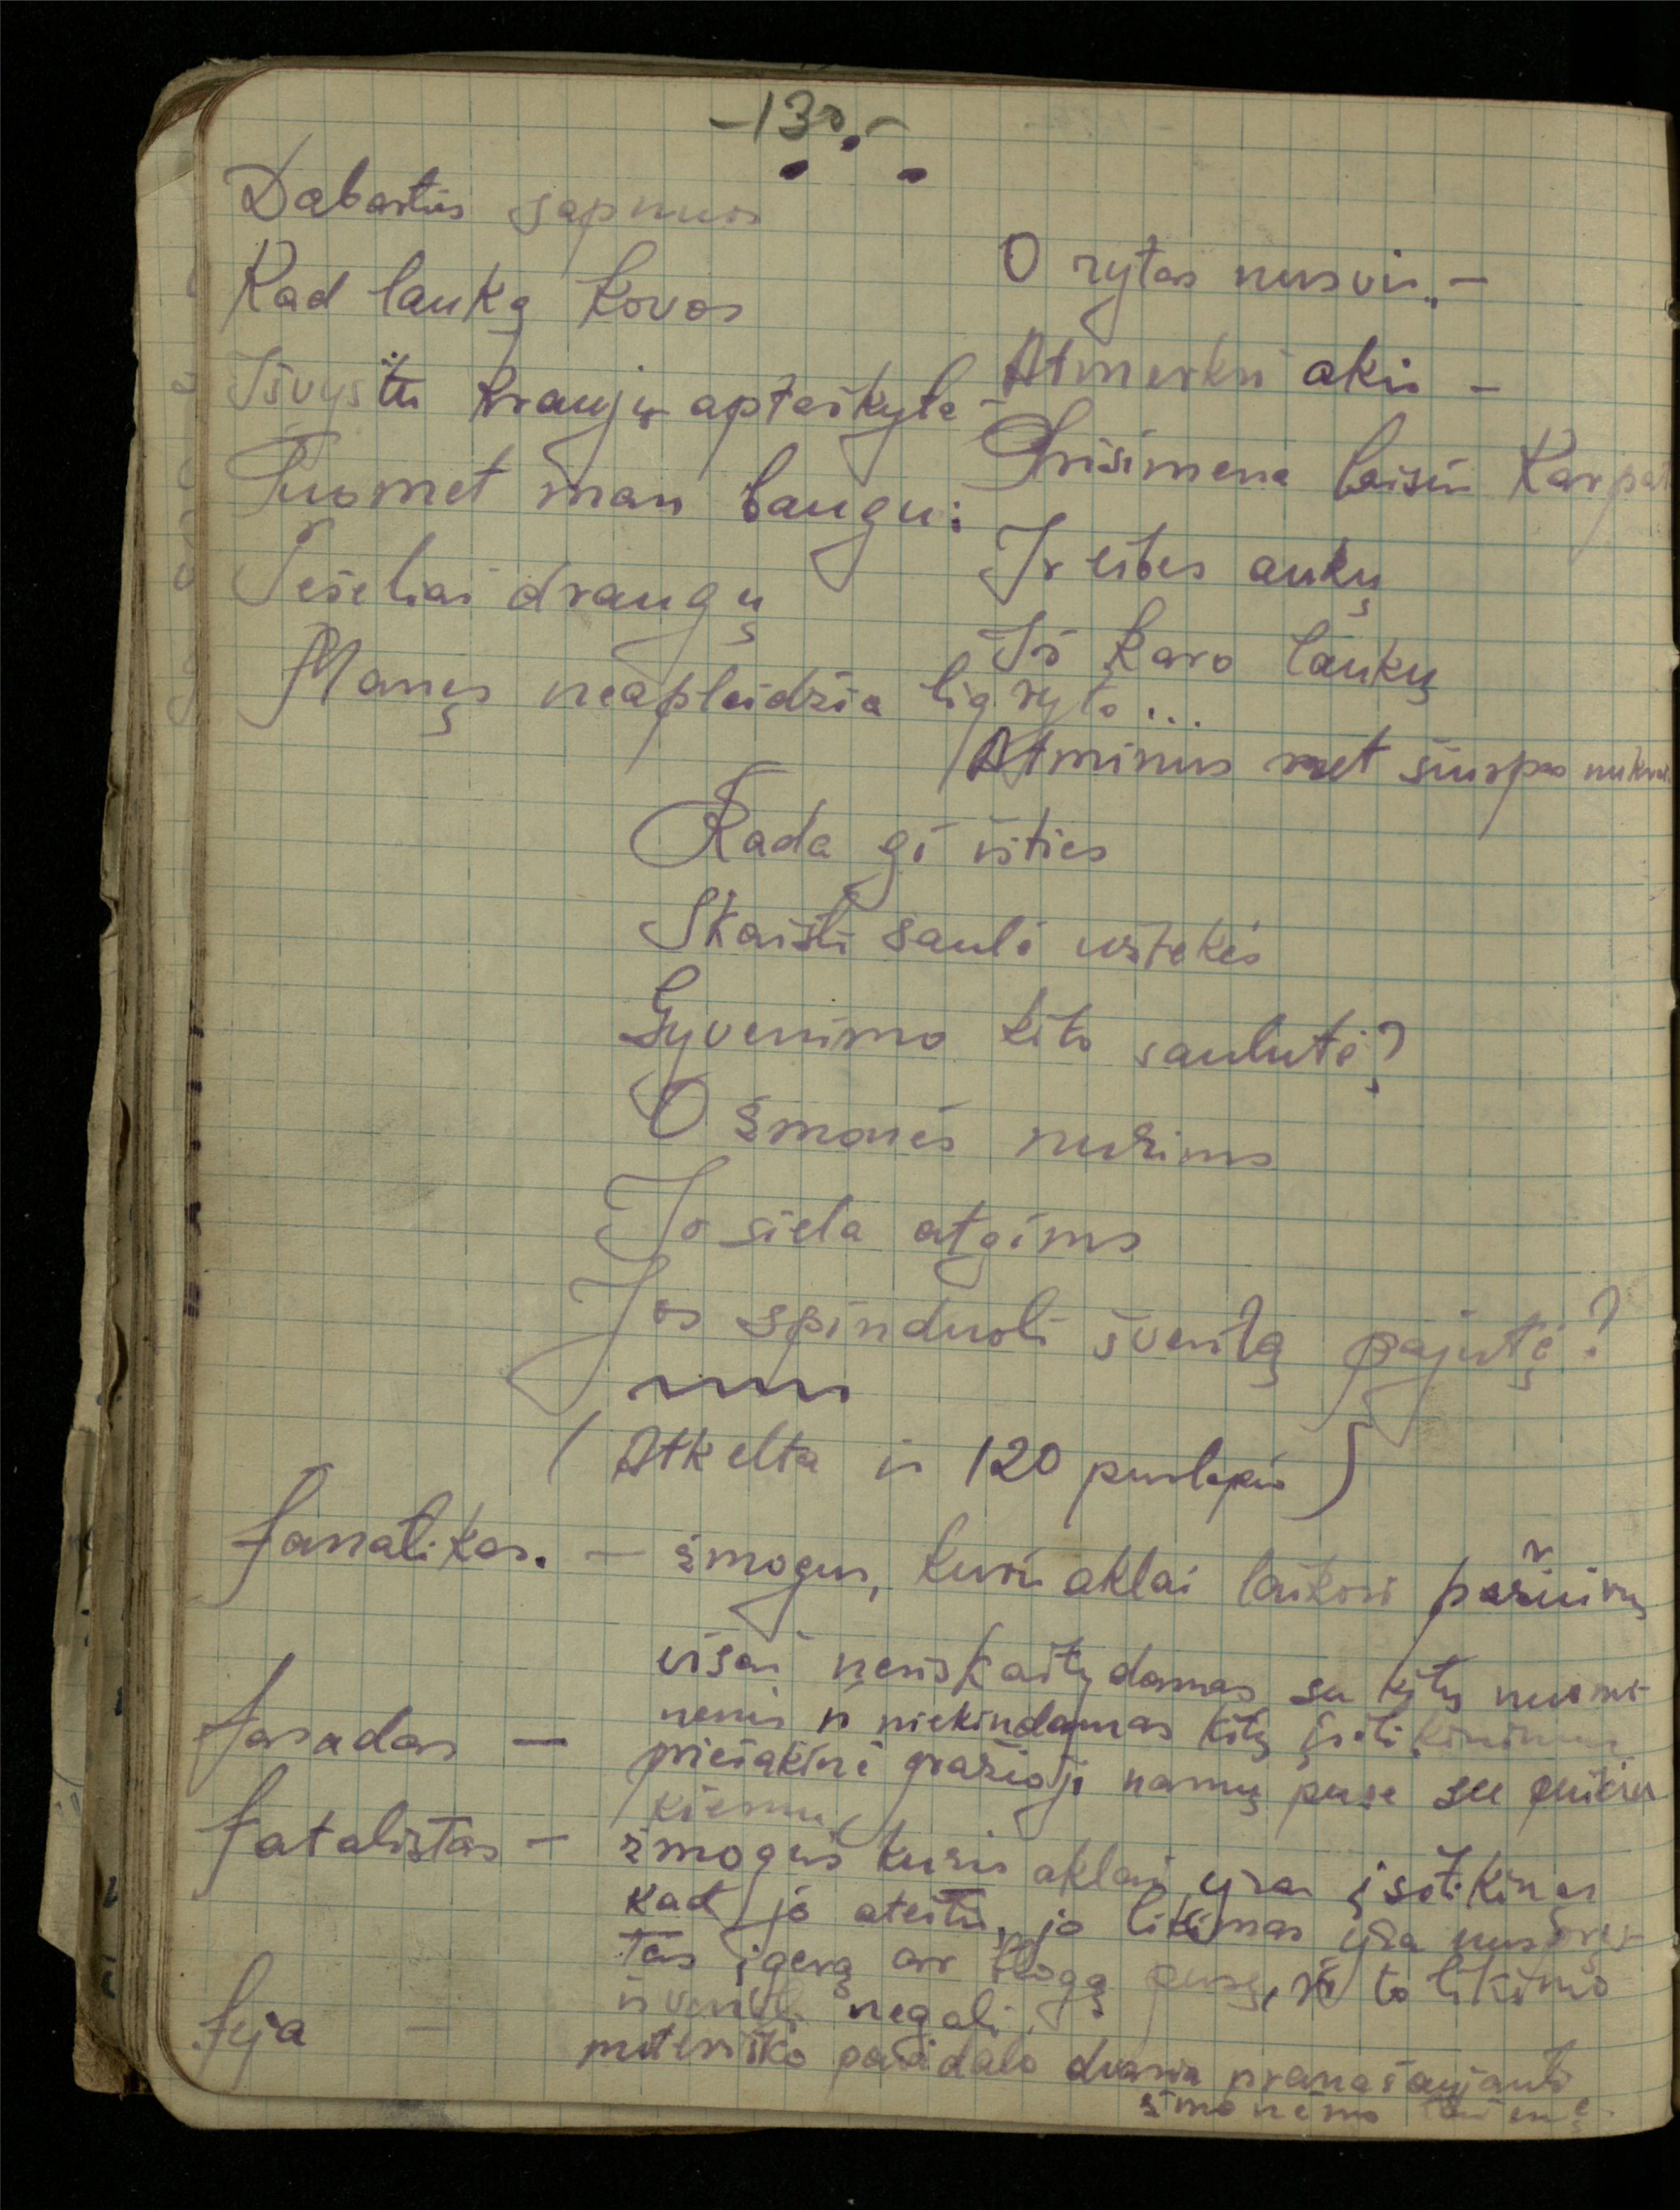 -130.-
Dabarties sapnuos
Kad lauką kovos
Išvystu kraują aptaškytą -
Tuomet man baugu:
Šešėliai draugų
Manęs neapleidžia lig ryto...
O rytas nusvis, -
Atmerksi akis -
Prisimena baisūs Karpat
Ir eibes aukų
Iš karo laukų
Atminus met šiurpas
Kada gi išties
Skaisti saulė užtekės
Gyvenimo kito saulutė?
O žmonės nurims
Jo siela atgims
Jos spinduoli šventą pajutę?
(Atkelta iš 120 puslapio)
fanatikas. - žmogus, kuris aklai laikosi pažiūrų
visai nesiskaitydamas su kitų nuomo-
nėmis ir niekindamas kitų įsitikinimus
fasadas - priešakinė gražioji namų pusė su
kiemu
fatalistas - žmogus kuris aklai yra įsitikinęs
kad jo ateitis, jo likimas yra nuspręs-
tas į gerą ar blogą pusę, ir to likimo
išvengti negali.
feja - moteriško pavidalo dvasia pranašaujanti
žmonėms